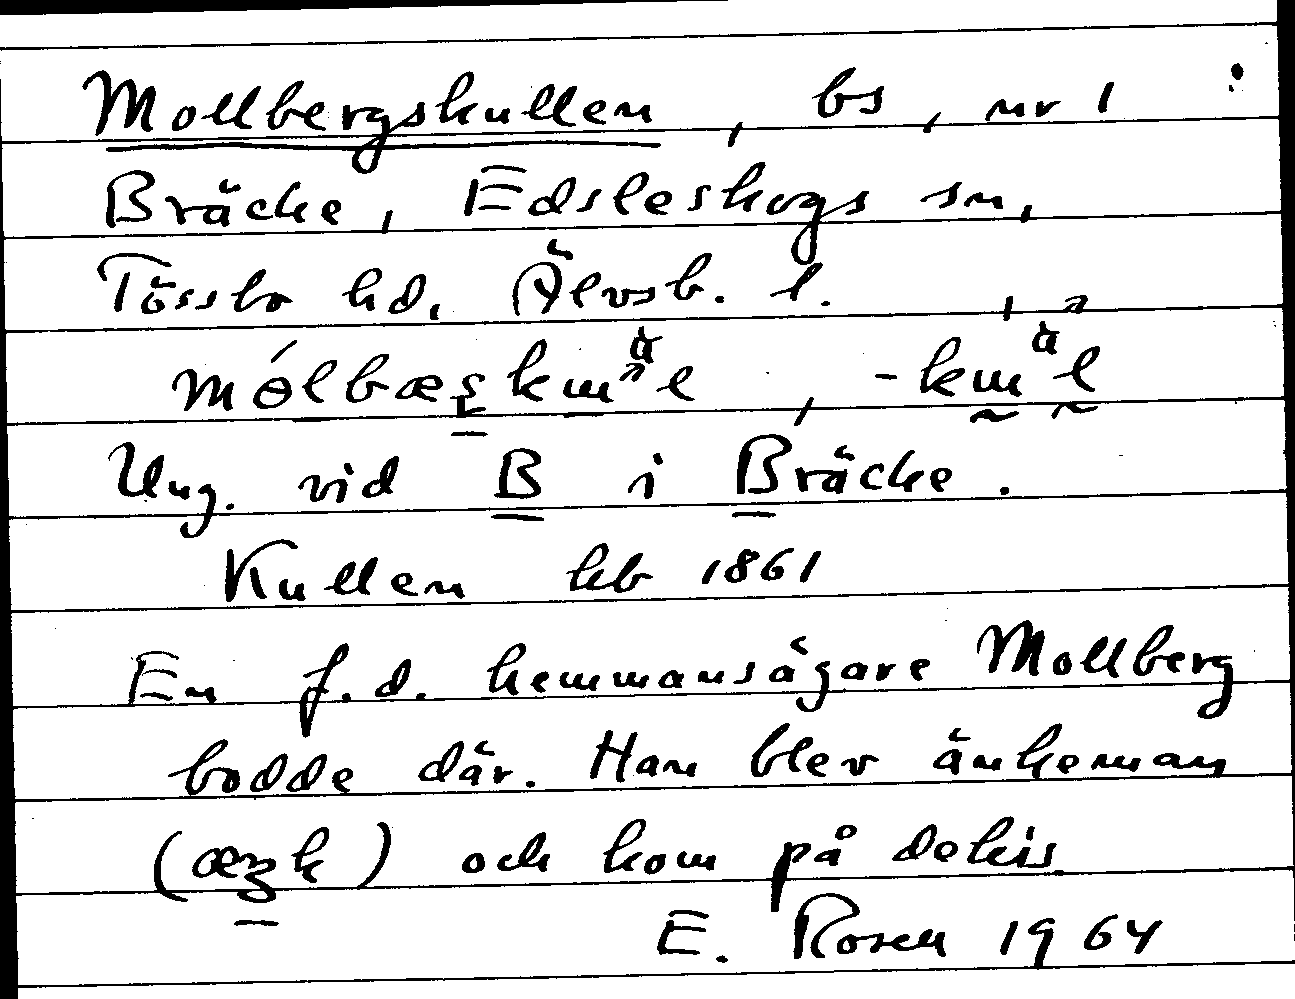 Mollbergskullen, bs, nr 1
Bräcke, Edsleskogs sn,
Tössbo hd. Älvsb. l.
Ung. vid B i Bräcke.
Kullen hb 1861
En f.d. hemmansägare Mollberg
bodde där. Han blev änkeman
och kom på dekis.
E. Rosen 1964